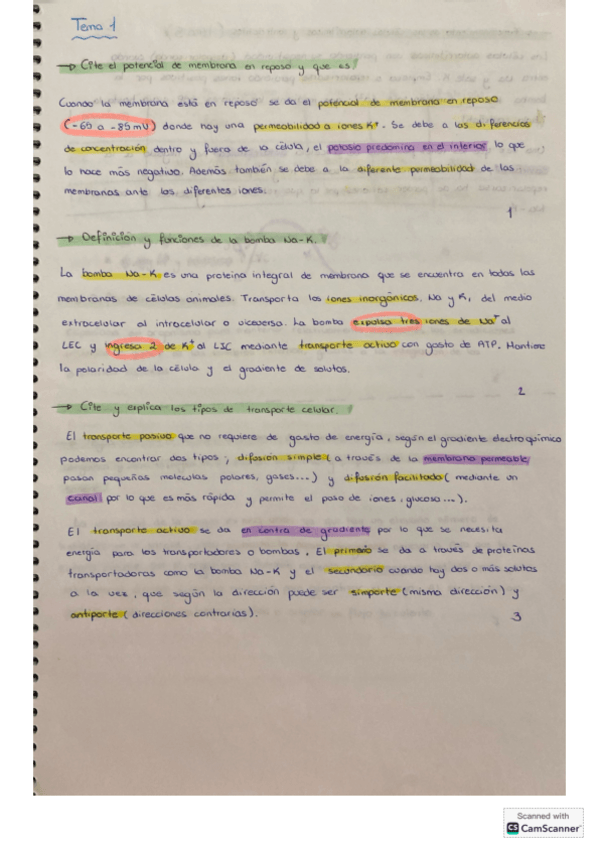 Tema 1
→ Cite el potencial de membrana en reposo y que es
Cuando la membrana está en reposo se da el potencial de membrana en reposo
(-65 a -85 mV) donde hay una permeabilidad a iones K+. Se debe a las diferencias
de concentración dentro y fuera de la célula, el potasio predomina en el interior lo que
lo hace más negativo. Además también se debe a la diferente permeabilidad de las
membranas ante los diferentes iones.
1
→ Definición y funciones de la bomba Na-K.
La bomba Na-K es una proteina integral de membrana que se encuentra en todas las
membranas de células animales. Transporta los iones inorgánicos, Na y K, del medio
extracelular al intracelular o viceversa. La bomba expulsa tres iones de Na+ al
LEC y ingresa 2 de K+ al LIC mediante transporte activo con gasto de ATP. Mantiene
la polaridad de la célula y el gradiente de solutos.
2
→ Cite y explica los tipos de transporte celular.
El transporte pasivo que no requiere de gasto de energía, según el gradiente electroquímico
podemos encontrar dos tipos; difusión simple (a través de la membrana permeable,
pasan pequeñas moleculas polares, gases...) y difusión facilitada (mediante un
canal por lo que es más rápida y permite el paso de iones, glucosa...).
El transporte activo se da en contra de gradiente por lo que se necesita
energía para los transportadores o bombas. El primario se da a través de proteínas
transportadoras como la bomba Na-K y el secundario cuando hay dos o más solutos
a la vez, que según la dirección puede ser simporte (misma dirección) y
antiporte (direcciones contrarias).
3
Scanned with
CS CamScanner